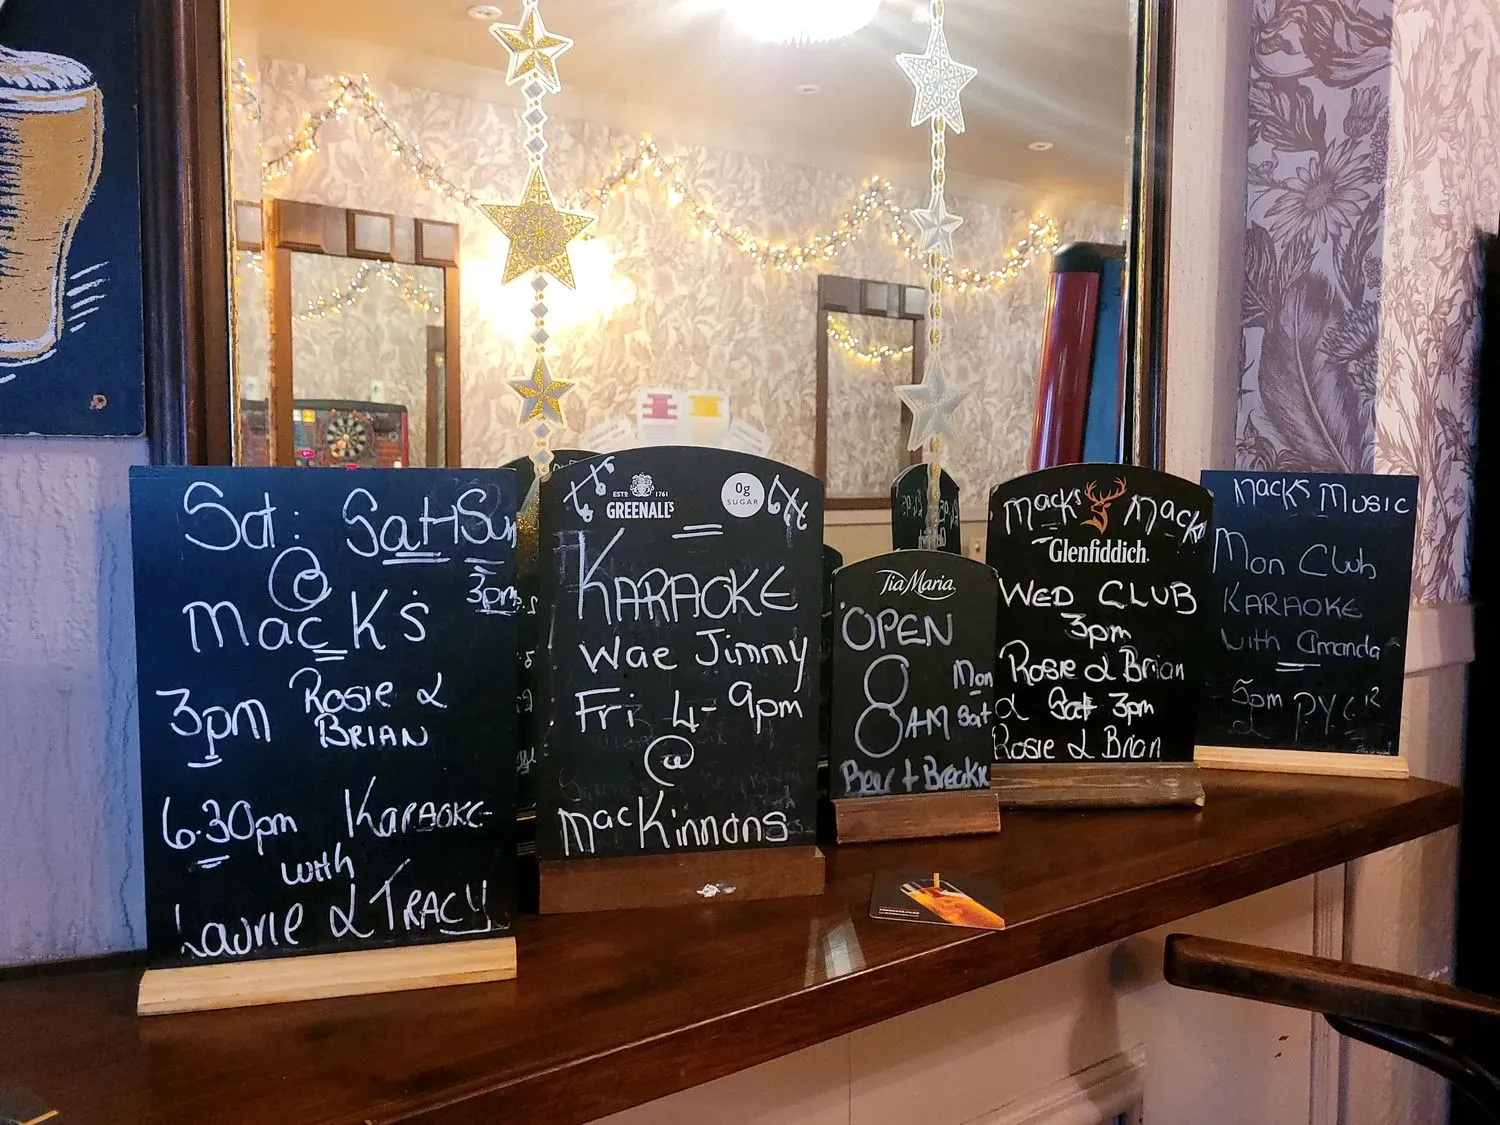 Sat: Sat+Sun
@
3pm
Mack's
3pm Rosie &
BRIAN
6.30pm KARAOKE
with
Laurie & TRACY
ESTD 1761
GREENALL'S
0g
SUGAR
KARAOKE
Wae Jimmy
Fri 4-9pm
@
MacKinnons
Tia Maria
OPEN
8 Mon
8AM Sat
Beer + Breakie
Mack's Mack's
Glenfiddich
WED CLUB
3pm
Rosie & Brian
& Sat 3pm
Rosie & Brian
Mack's Music
Mon Club
KARAOKE
with Amanda
5pm